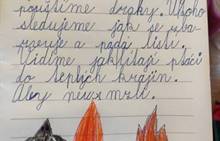 pouštíme draky. Všoho
sledujeme jak se vyba
rvuje a padá listí.
Vidíme jak lítají ptáci
do teplých krajin.
Aby neumrzli.